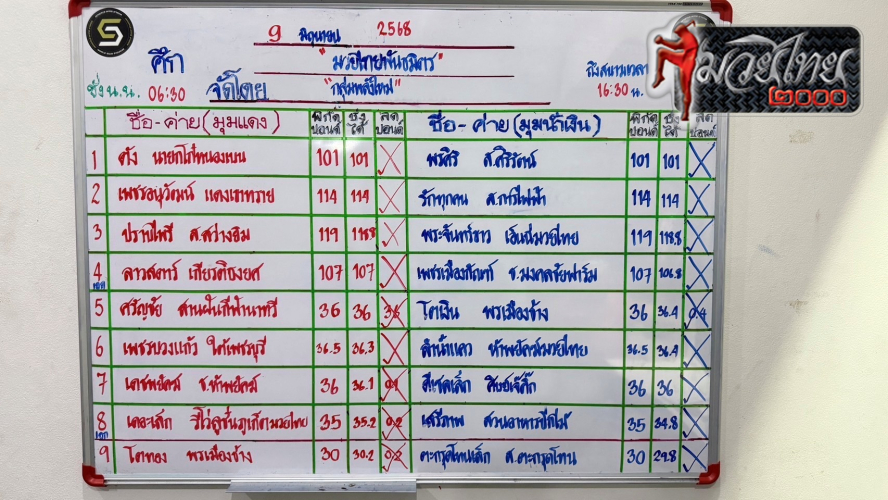 9 มิถุนายน 2568
ศึก "มวยไทยพันธมิตร"
ชั่ง น.น. 06:30 จัดโดย "กลุ่มพลังใหม่" ถึงสนามเวลา 16:30 น.
มวยไทย ๒๐๐๐
ชื่อ-ค่าย (มุมแดง) พิกัดปอนด์ ชั่งได้ ลดปอนด์ ชื่อ-ค่าย (มุมน้ำเงิน) พิกัดปอนด์ ชั่งได้ ลดปอนด์
1 ตัง นายกโก๋หนองแบน 101 101 พรศิริ ส.ศิริรัตน์ 101 101
2 เพชรอนุวัฒน์ แดงเขาทราย 114 114 รักทุกคน ส.การไฟฟ้า 114 114
3 ปราบไพรี ส.สว่างธิม 119 118.8 พระจันทร์ขาว เอ็นนี่มวยไทย 119 118.8
4 ลาวสตาร์ เกียรติธงยศ 107 107 เพชรเมืองกัณฑ์ ช.มงคลชัยฟาร์ม 107 106.8
5 ศรัญชัย สานฝันกีฬานาทวี 36 36 โตเงิน พรเมืองช้าง 36 36.4 0.4
6 เพชรบวงแก้ว ใต้เพชรบุรี 36.5 36.3 ลำน้ำแคว ทัพยัคฆ์มวยไทย 36.5 36.4
7 เดชพยัคฆ์ ช.ทัพยัคฆ์ 36 36.1 0.1 สิงห์เจ๊กิ๊ก 36 36
8 เดอะเล็ก รีโวลูชั่นภูเก็ตมวยไทย 35 35.2 0.2 เสรีภาพ สวนอาหารปีกไม้ 35 34.8
เอก
9 โตทอง พรเมืองช้าง 30 30.2 0.2 ตะกรุดโทนเล็ก ส.ตะกรุดโทน 30 29.8